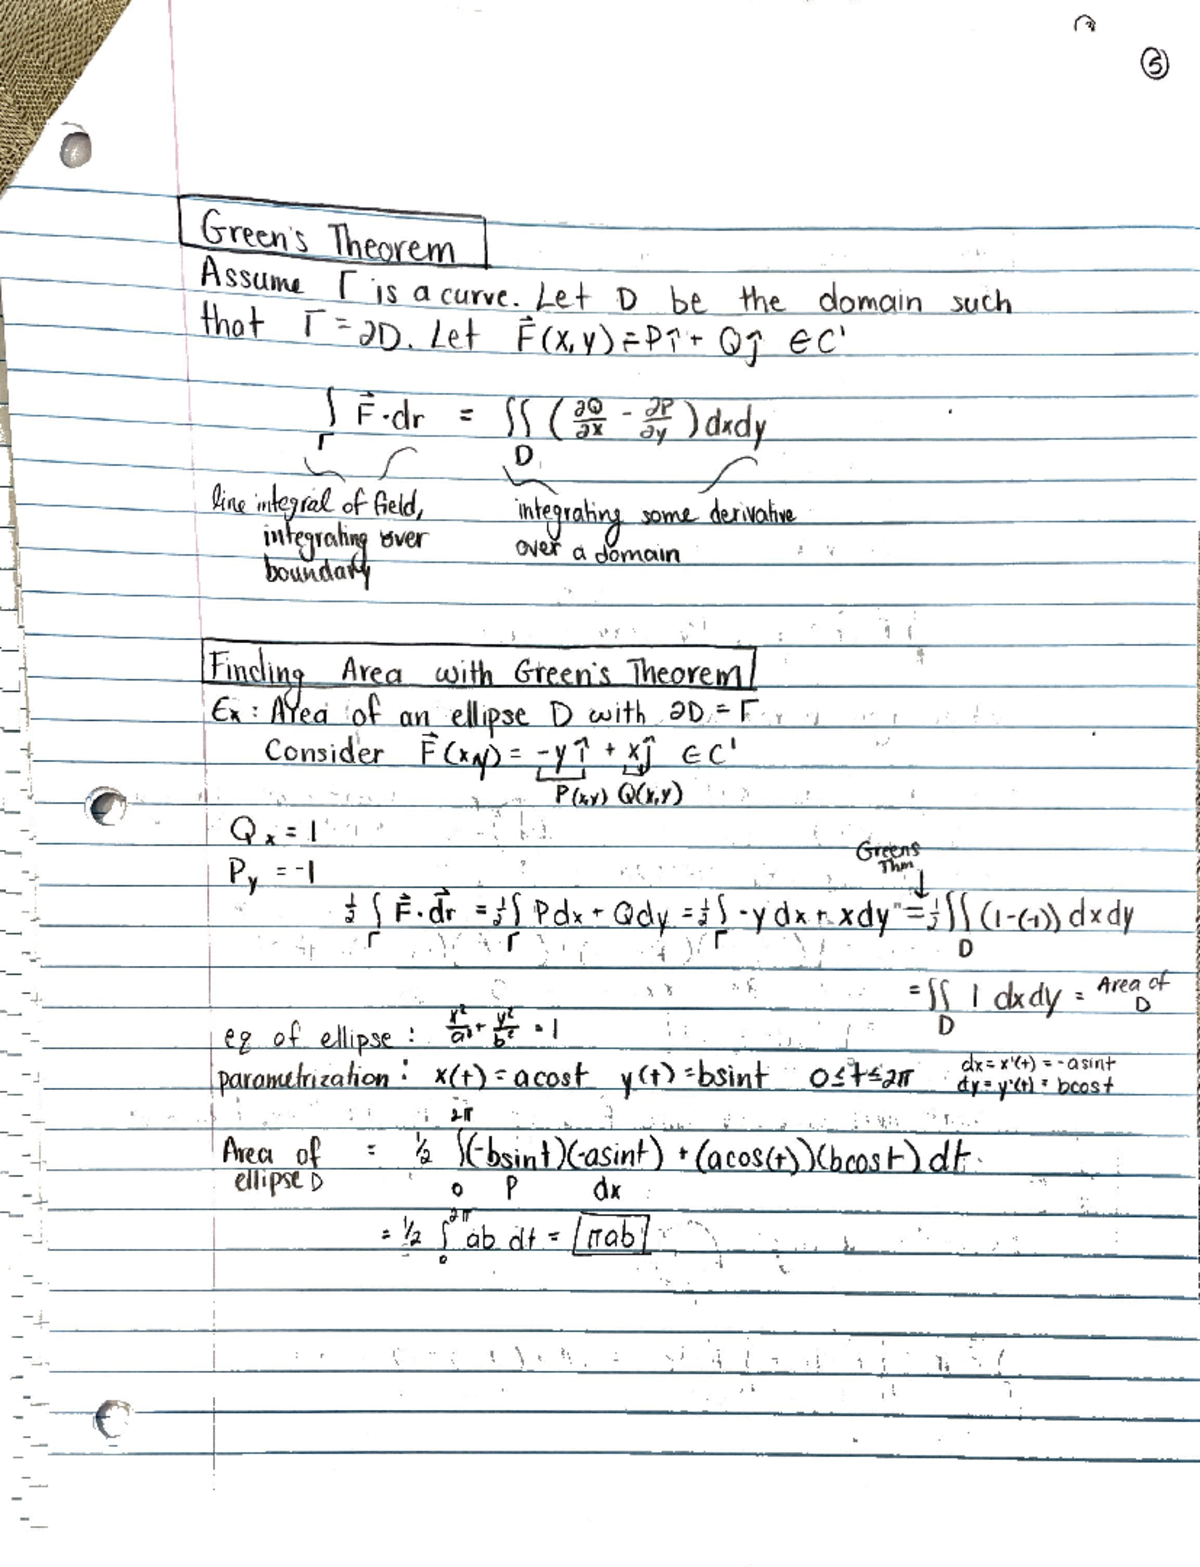 ⑤
Green's Theorem
Assume Γ is a curve. Let D be the domain such
that Γ = ∂D. Let F⃗(x,y) = Pî + Qĵ ∈ C'
∫_Γ F⃗·dr = ∬_D (∂Q/∂x - ∂P/∂y) dxdy
line integral of field, integrating some derivative
integrating over over a domain
boundary
Finding Area with Green's Theorem
Ex: Area of an ellipse D with ∂D = Γ
Consider F⃗(x,y) = -yî + xĵ ∈ C'
P(x,y) Q(x,y)
Qx = 1
Greens
Thm
Py = -1
½ ∫_Γ F⃗·dr⃗ = ½ ∫_Γ Pdx + Qdy = ½ ∫_Γ -ydx + xdy "= ½ ∬_D (1-(-1)) dxdy
= ∬_D 1 dxdy = Area of D
eq of ellipse : x²/a² + y²/b² = 1
parametrization : x(t) = acost y(t) = bsint 0≤t≤2π dx = x'(t) = -asint
dy = y'(t) = bcost
Area of ellipse D = ½ ∫_0^2π (-bsint)(-asint) + (acos(t))(bcost) dt
P dx
= ½ ∫_0^2π ab dt = πab